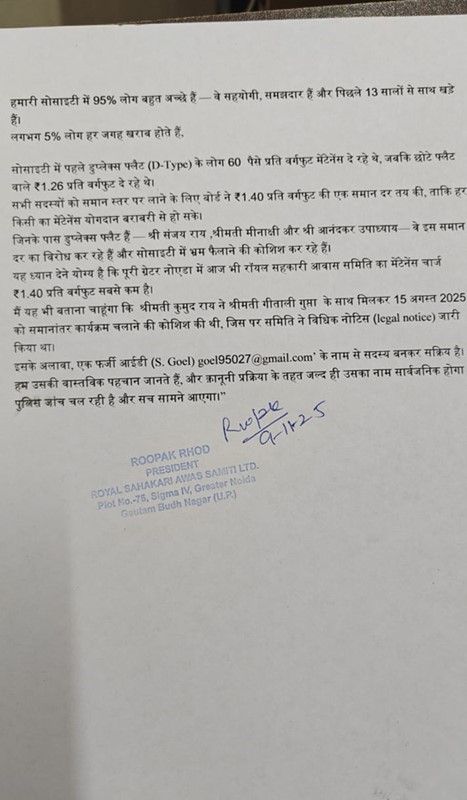 हमारी सोसाइटी में 95% लोग बहुत अच्छे हैं — वे सहयोगी, समझदार हैं और पिछले 13 सालों से साथ खड़े
हैं।
लगभग 5% लोग हर जगह खराब होते हैं,
सोसाइटी में पहले डुप्लेक्स फ्लैट (D-Type) के लोग 60 पैसे प्रति वर्गफुट मेंटेनेंस दे रहे थे, जबकि छोटे फ्लैट
वाले ₹1.26 प्रति वर्गफुट दे रहे थे।
सभी सदस्यों को समान स्तर पर लाने के लिए बोर्ड ने ₹1.40 प्रति वर्गफुट की एक समान दर तय की, ताकि हर
किसी का मेंटेनेंस योगदान बराबरी से हो सके।
जिनके पास डुप्लेक्स फ्लैट हैं – श्री संजय राय ,श्रीमती मीनाक्षी और श्री आनंदकर उपाध्याय– वे इस समान
दर का विरोध कर रहे हैं और सोसाइटी में भ्रम फैलाने की कोशिश कर रहे हैं।
यह ध्यान देने योग्य है कि पूरी ग्रेटर नोएडा में आज भी रॉयल सहकारी आवास समिति का मेंटेनेंस चार्ज
₹1.40 प्रति वर्गफुट सबसे कम है।
मैं यह भी बताना चाहूंगा कि श्रीमती कुमुद राय ने श्रीमती गीताली गुप्ता के साथ मिलकर 15 अगस्त 2025
को समानांतर कार्यक्रम चलाने की कोशिश की थी, जिस पर समिति ने विधिक नोटिस (legal notice) जारी
किया था।
इसके अलावा, एक फर्जी आईडी (S. Goel) goel95027@gmail.com' के नाम से सदस्य बनकर सक्रिय है।
हम उसकी वास्तविक पहचान जानते हैं, और क़ानूनी प्रक्रिया के तहत जल्द ही उसका नाम सार्वजनिक होगा
पुलिस जांच चल रही है और सच सामने आएगा।”
Roopak
ROOPAK RHOD
PRESIDENT
ROYAL SAHAKARI AWAS SAMITI LTD.
Plot No.-75, Sigma IV, Greater Noida
Gautam Budh Nagar (U.P.)